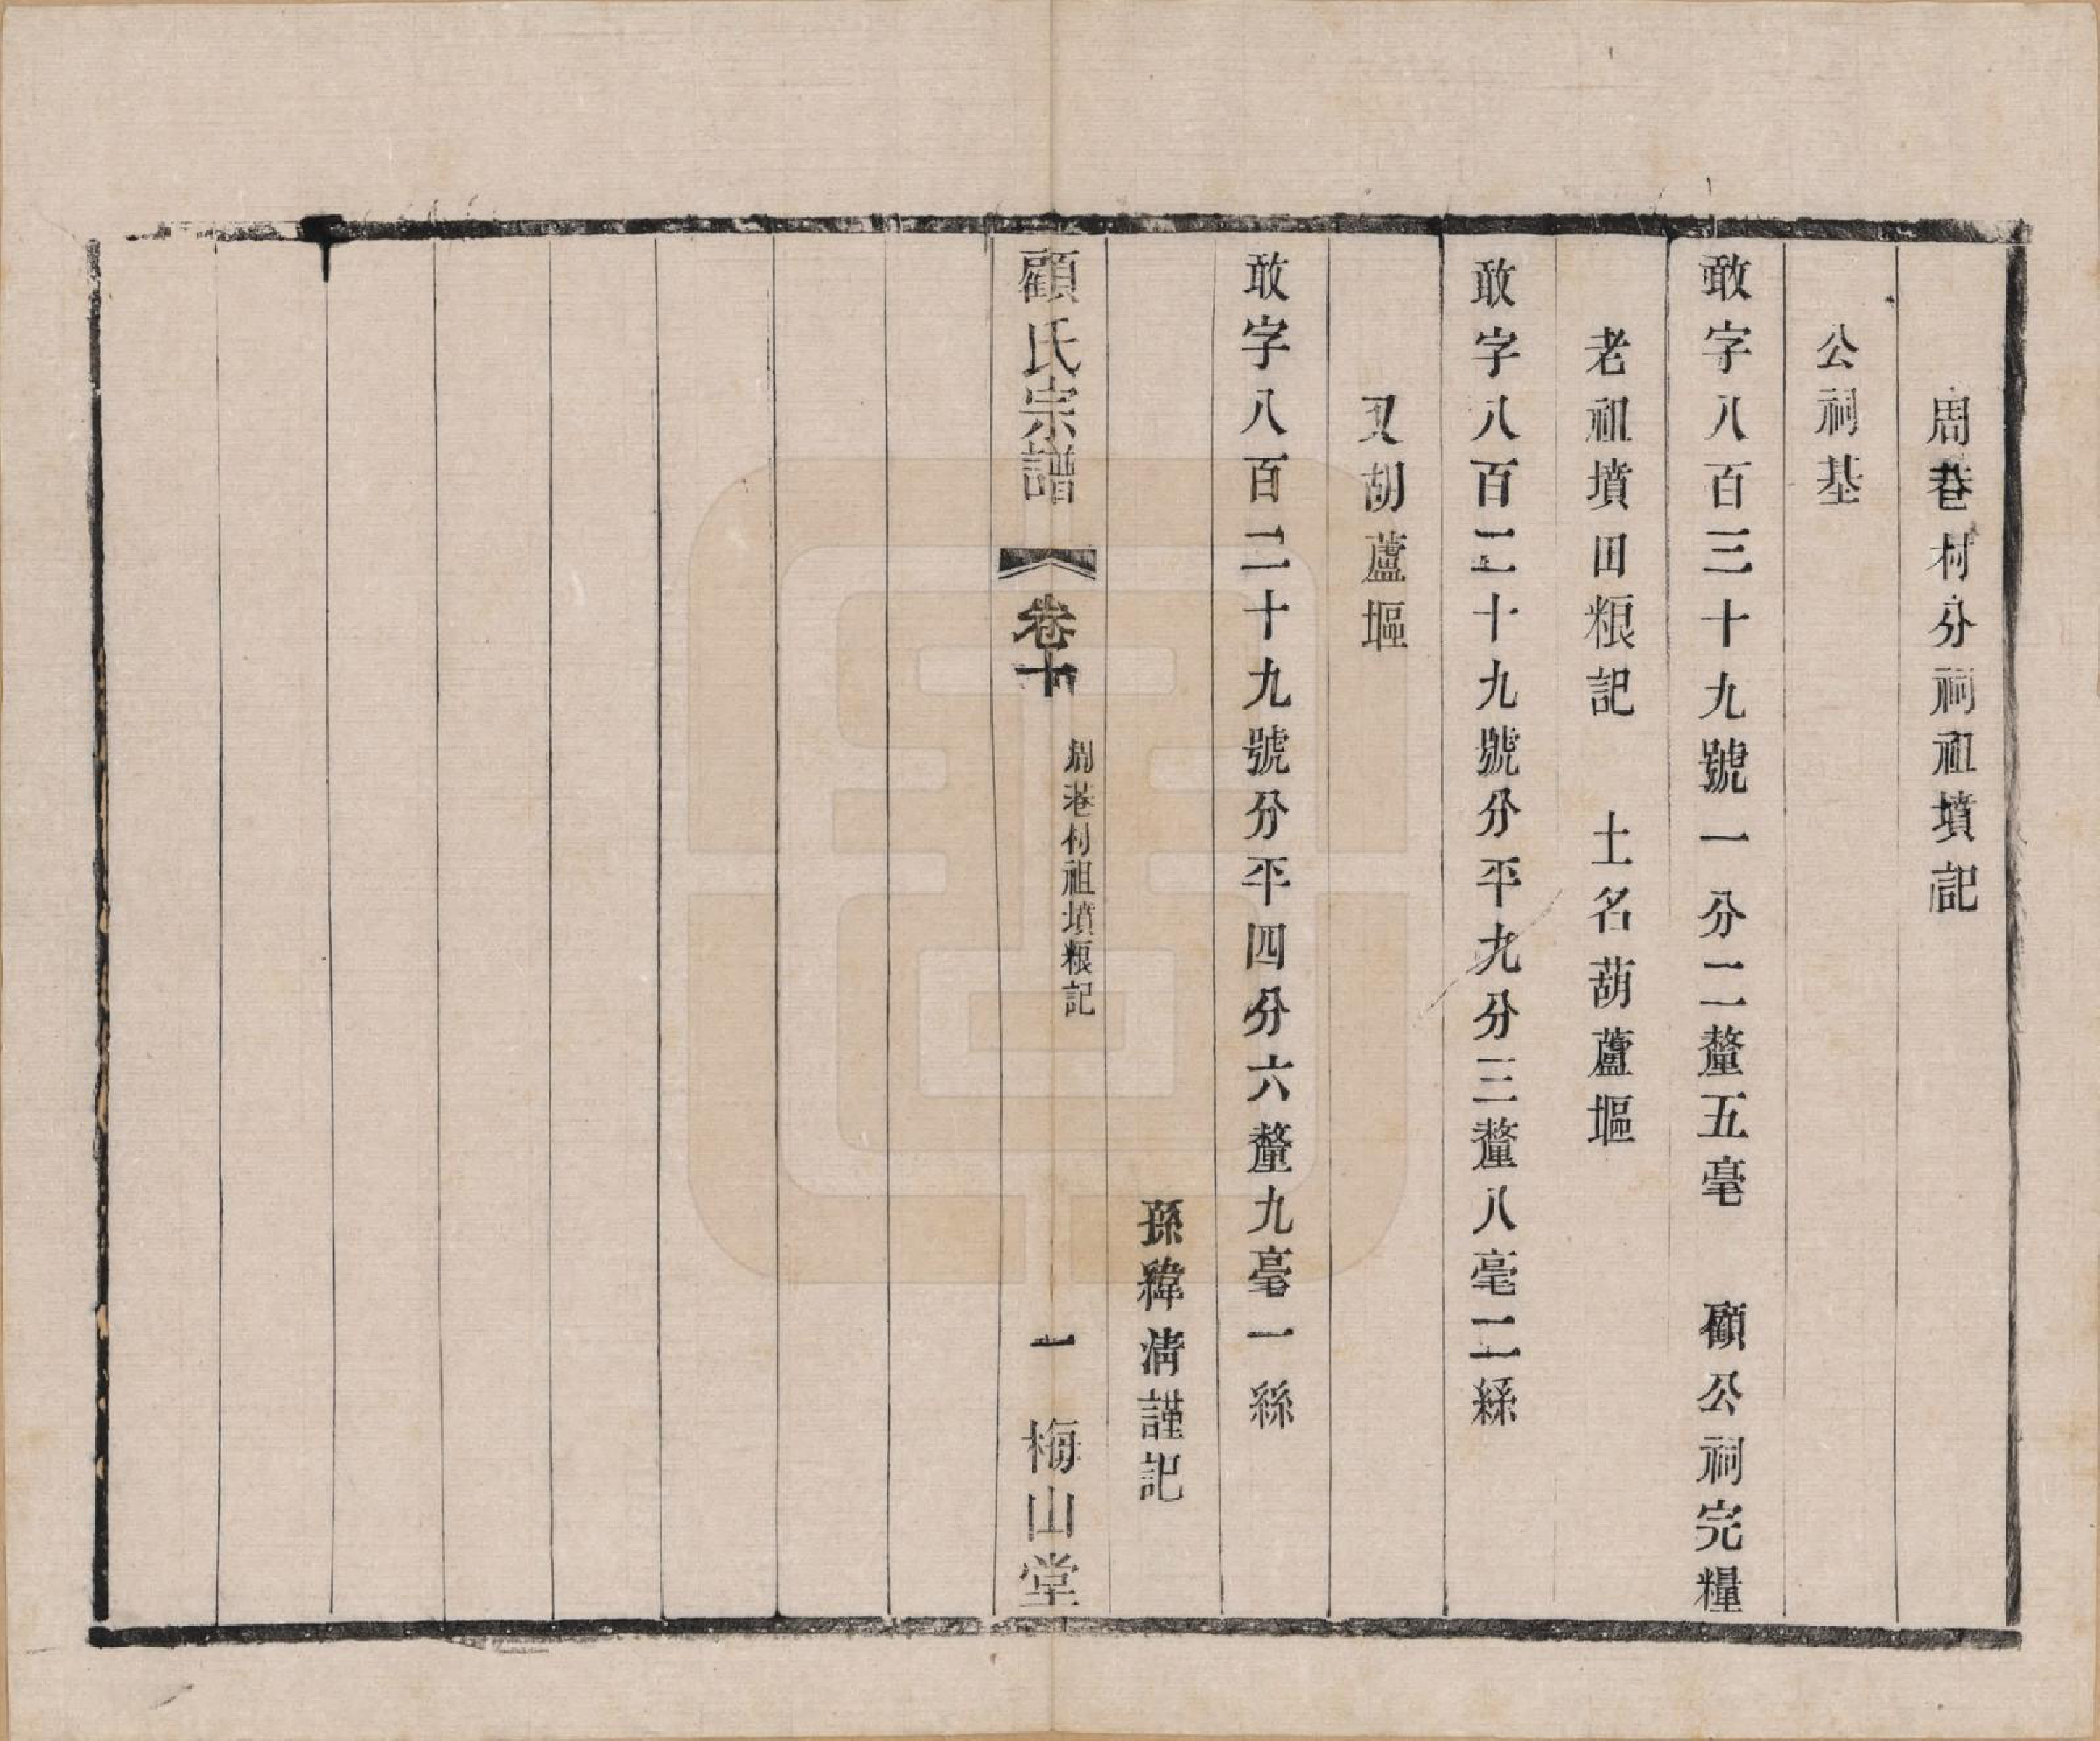 周巷村分祠祖墳記
公祠基
敢字八百三十九號一分二釐五毫　顧公祠完糧
老祖墳田粮記　土名葫蘆塸
敢字八百二十九號分平九分三釐八毫二絲
又胡蘆塸
敢字八百二十九號分平四分六釐九毫一絲
孫緯淸謹記
顧氏宗譜　卷十　周巷村祖墳粮記　一　梅山堂